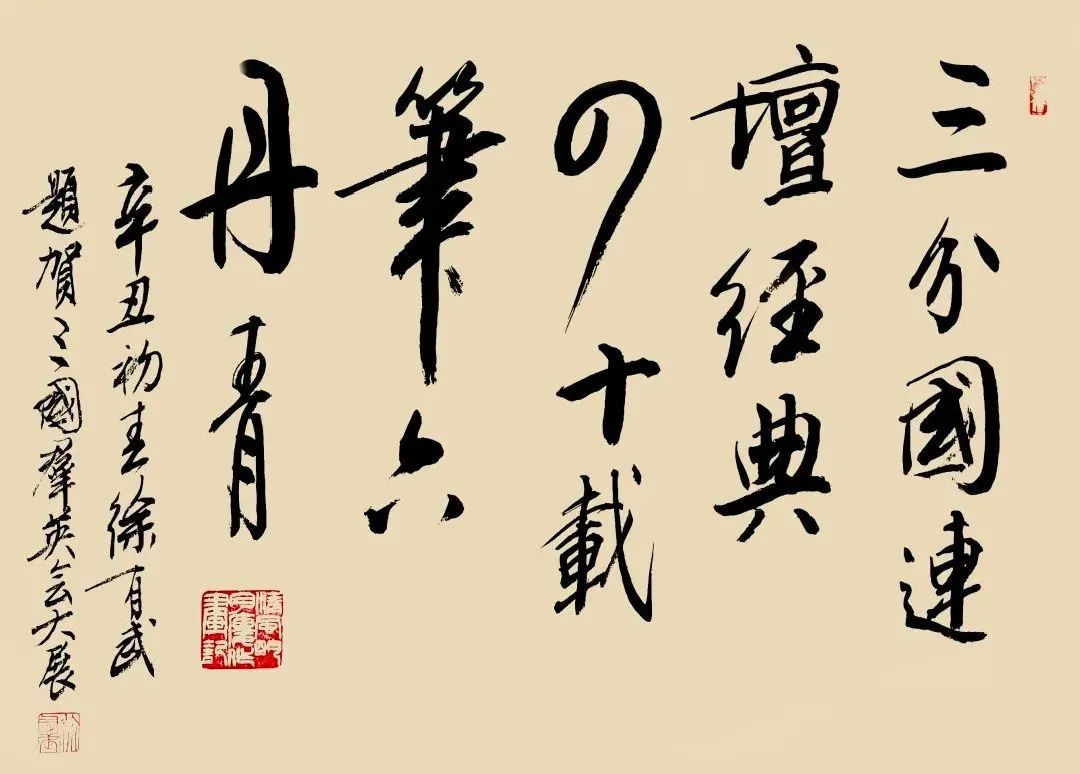 三分國連
壇經典
四十載
筆六
丹青
辛丑初春徐有武
題賀三國羣英会大展